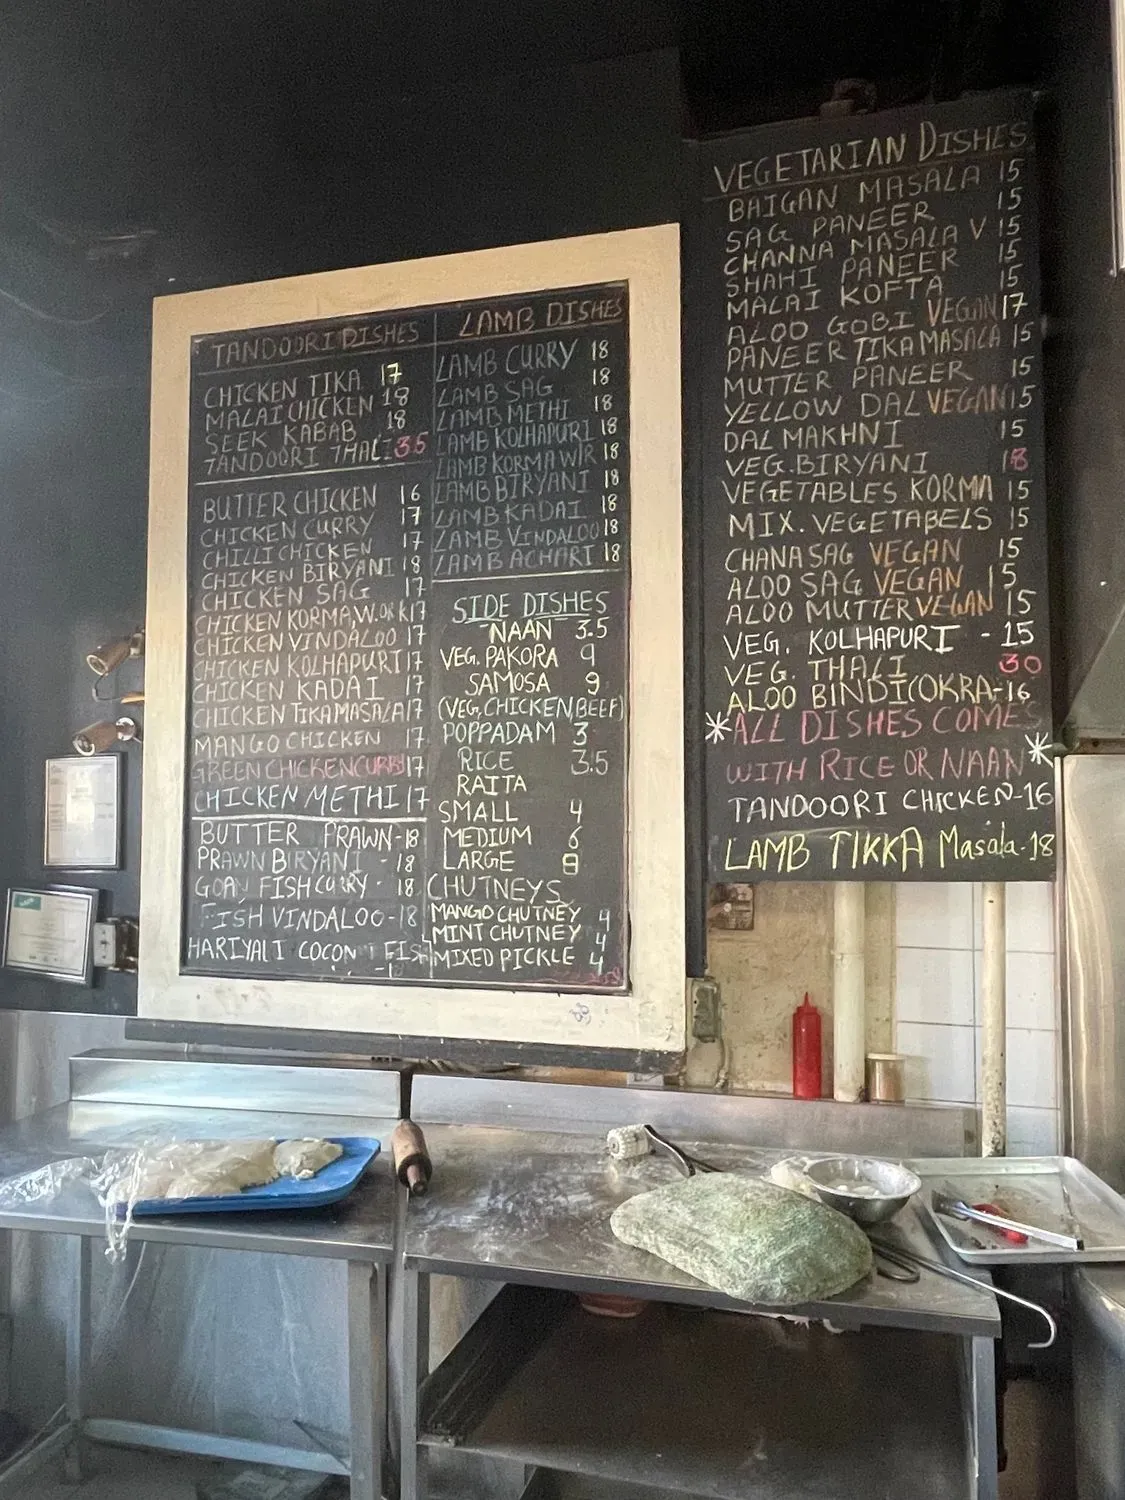 TANDOORI DISHES
CHICKEN TIKA 17
MALAI CHICKEN 18
SEEK KABAB 18
TANDOORI THALI 35
BUTTER CHICKEN 16
CHICKEN CURRY 17
CHILLI CHICKEN 17
CHICKEN BIRYANI 18
CHICKEN SAG 17
CHICKEN KORMA,W.OR K 17
CHICKEN VINDALOO 17
CHICKEN KOLHAPURI 17
CHICKEN KADAI 17
CHICKEN TIKA MASALA 17
MANGO CHICKEN 17
GREEN CHICKEN CURRY 17
CHICKEN METHI 17
BUTTER PRAWN-18
PRAWN BIRYANI - 18
GOAN FISH CURRY - 18
FISH VINDALOO-18
HARIYALI FISH
LAMB DISHES
LAMB CURRY 18
LAMB SAG 18
LAMB METHI 18
LAMB KOLHAPURI 18
LAMB KORMA 18
LAMB BIRYANI 18
LAMB KADAI 18
LAMB VINDALOO 18
LAMB ACHARI 18
SIDE DISHES
NAAN 3.5
VEG. PAKORA 9
SAMOSA 9
(VEG, CHICKEN, BEEF)
POPPADAM 3
RICE 3.5
RAITA
SMALL 4
MEDIUM 6
LARGE
CHUTNEYS
MANGO CHUTNEY 4
MINT CHUTNEY 4
MIXED PICKLE 4
VEGETARIAN DISHES
BAIGAN MASALA 15
SAG PANEER 15
CHANNA MASALA V 15
SHAHI PANEER 15
MALAI KOFTA 15
ALOO GOBI VEGAN 17
PANEER TIKA MASALA 15
MUTTER PANEER 15
YELLOW DAL VEGAN 15
DAL MAKHNI 15
VEG.BIRYANI 18
VEGETABLES KORMA 15
MIX. VEGETABELS 15
CHANA SAG VEGAN 15
ALOO SAG VEGAN 15
ALOO MUTTER VEGAN 15
VEG. KOLHAPURI - 15
VEG. THALI 30
ALOO BINDI(OKRA-16
*ALL DISHES COMES
WITH RICE OR NAAN*
TANDOORI CHICKEN-16
LAMB TIKKA Masala-18